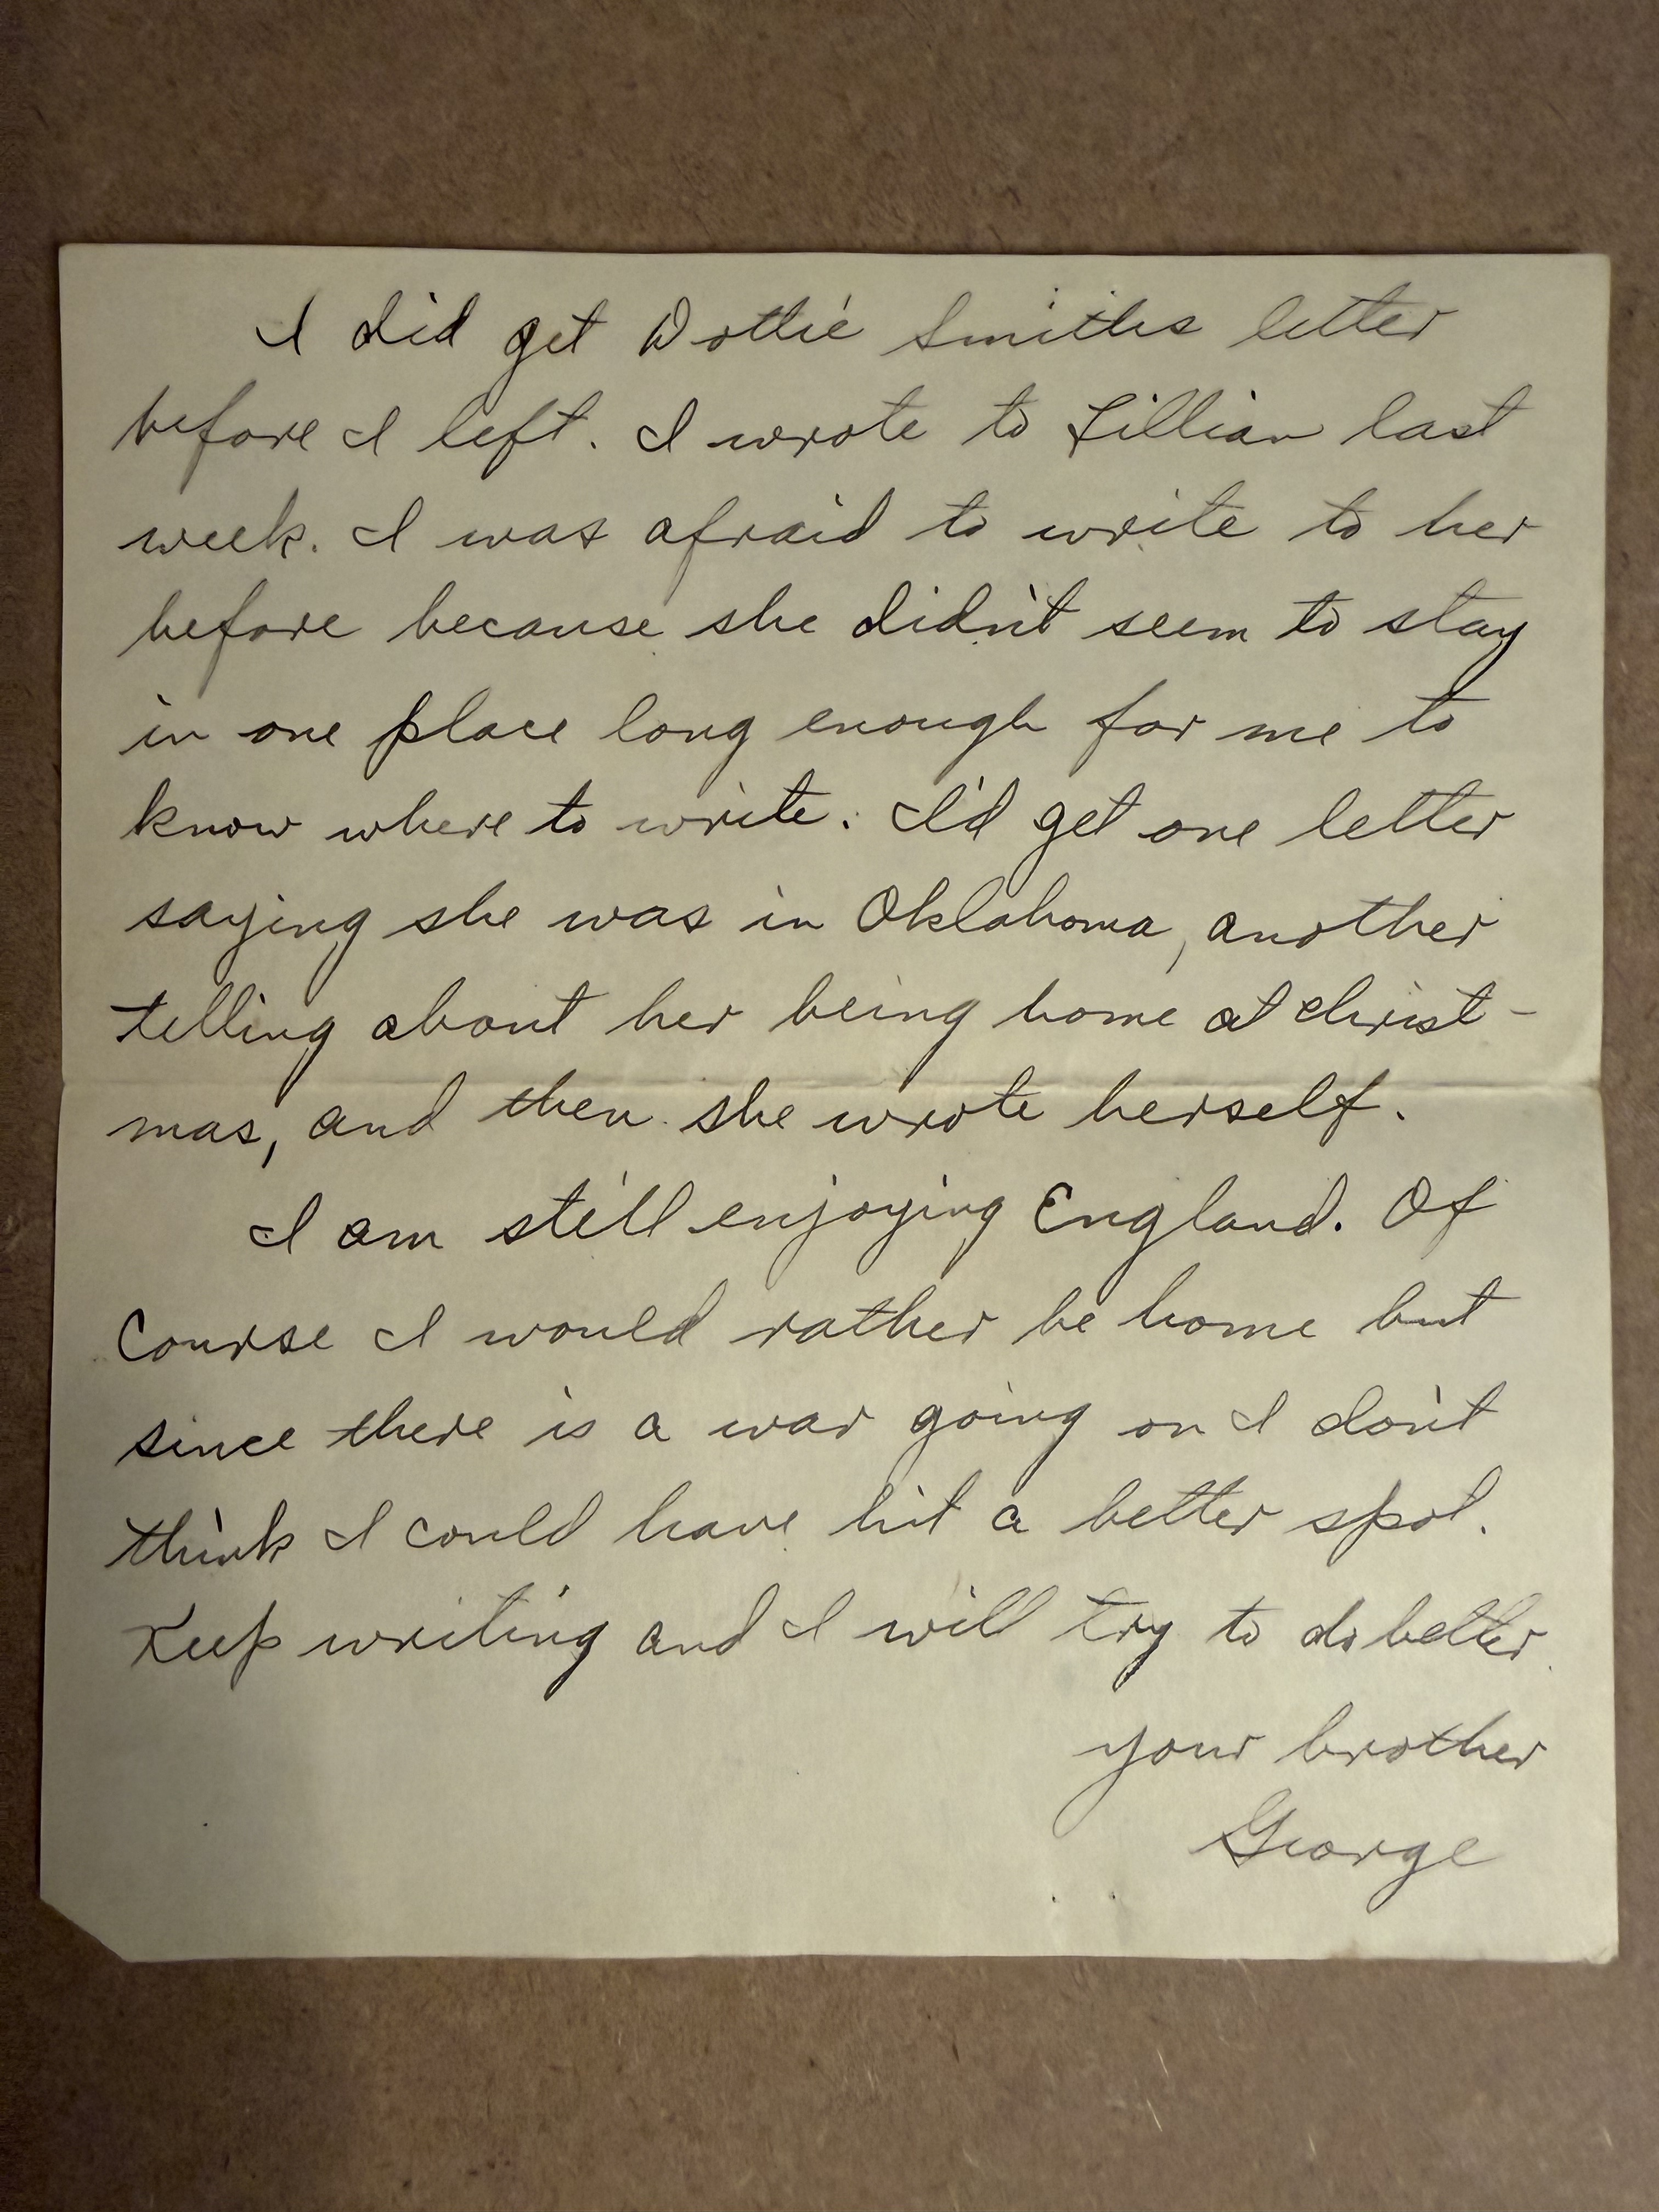 I did get Dottie Smiths letter
before I left. I wrote to Lillian last
week. I was afraid to write to her
before because she didn't seem to stay
in one place long enough for me to
know where to write. I'd get one letter
saying she was in Oklahoma, another
telling about her being home at Christ-
mas, and then she wrote herself.
I am still enjoying England. Of
Course I would rather be home but
since there is a war going on I don't
think I could have hit a better spot.
Keep writing and I will try to do better.
your brother
George